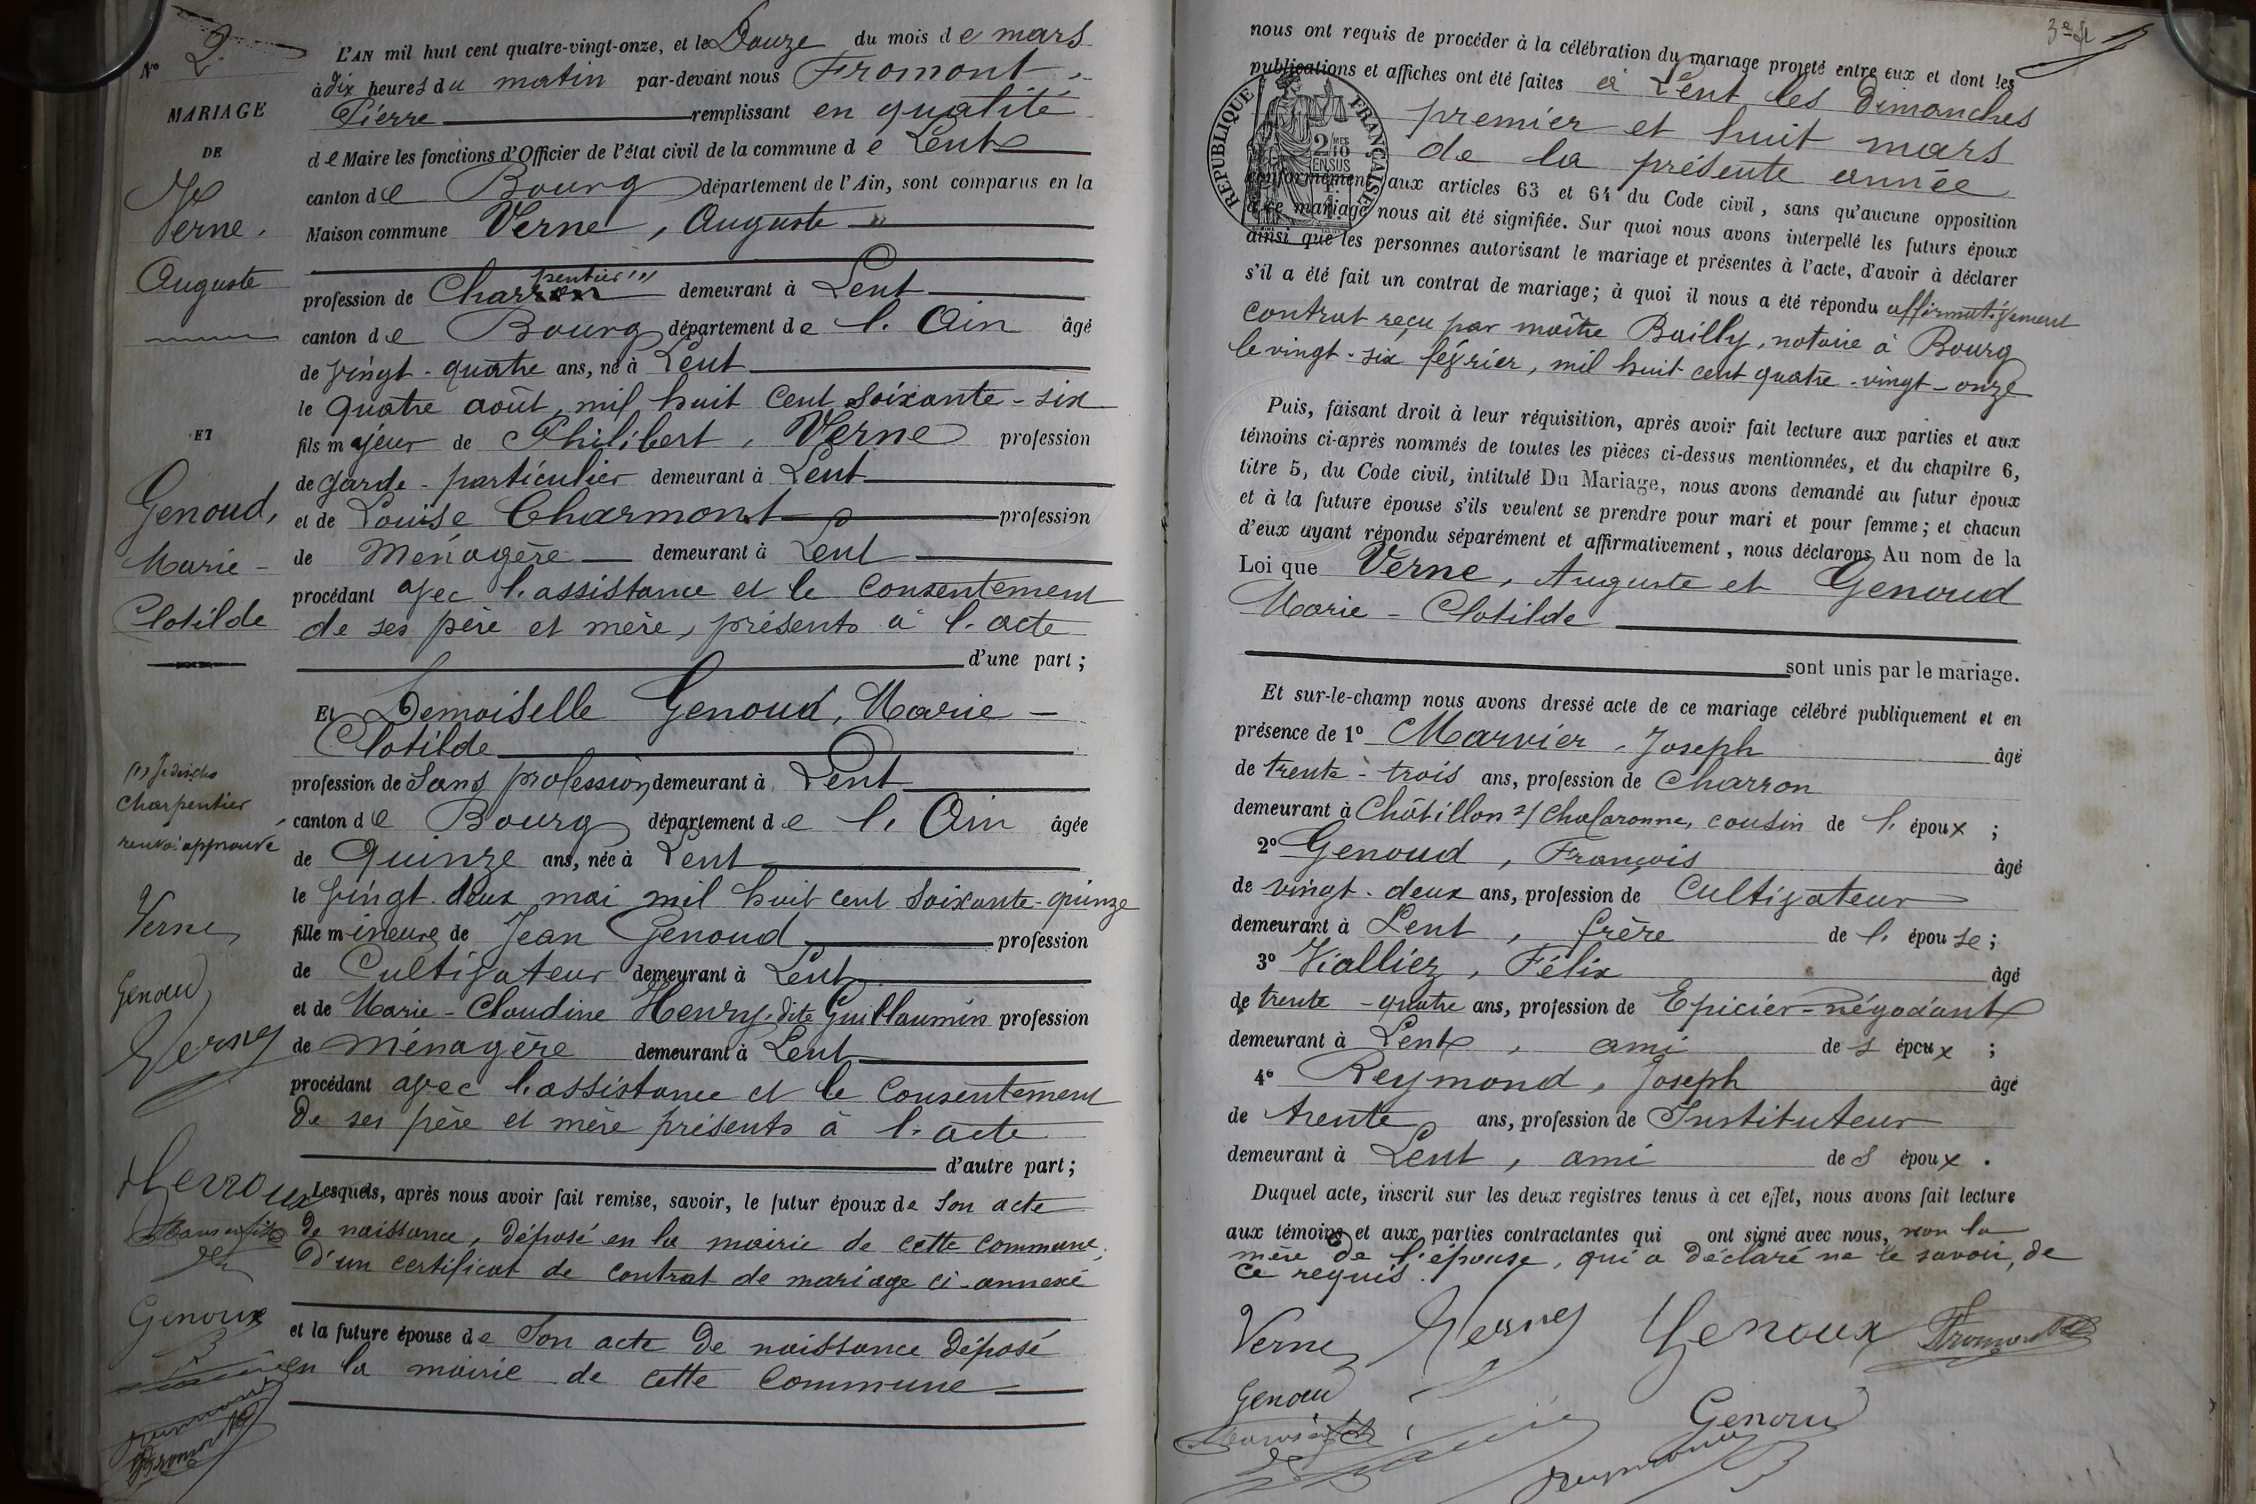 N° 2.
MARIAGE
DE
Verne,
Auguste
ET
Genoud,
Marie-
Clotilde
(1) Je dis
Charpentier
renvoi approuvé
Verne
Genoud
Verney
Genoux
L'AN mil huit cent quatre-vingt-onze, et le Douze du mois de mars
à dix heures du matin par-devant nous Fromont,
Pierre remplissant en qualité
de Maire les fonctions d'Officier de l'état civil de la commune de Lent
canton de Bourg département de l'Ain, sont comparus en la
Maison commune Verne, Auguste
profession de Charron pentier (1) demeurant à Lent
canton de Bourg département de l'Ain âgé
de vingt-quatre ans, né à Lent
le quatre août, mil huit cent soixante-six
fils majeur de Philibert, Verne profession
de garde-particulier demeurant à Lent
et de Louise Charmont profession
de Ménagère demeurant à Lent
procédant avec l'assistance et le consentement
de ses père et mère, présents à l'acte
d'une part ;
Et Demoiselle Genoud, Marie-
Clotilde
profession de Sans profession demeurant à Lent
canton de Bourg département de l'Ain âgée
de Quinze ans, née à Lent
le vingt-deux mai mil huit cent soixante-quinze
fille mineure de Jean Genoud profession
de Cultivateur demeurant à Lent
et de Marie-Claudine Henry, dite Guillaumin profession
de ménagère demeurant à Lent
procédant avec l'assistance et le consentement
de ses père et mère présents à l'acte
d'autre part ;
Lesquels, après nous avoir fait remise, savoir, le futur époux de son acte
de naissance, déposé en la mairie de cette commune,
d'un certificat de contrat de mariage ci-annexé
et la future épouse de son acte de naissance déposé
en la mairie de cette commune
nous ont requis de procéder à la célébration du mariage projeté entre eux et dont les
publications et affiches ont été faites à Lent les dimanches
premier et huit mars
de la présente année
RÉPUBLIQUE FRANÇAISE
2/10 MES
EN SUS
conformément aux articles 63 et 64 du Code civil, sans qu'aucune opposition
à ce mariage nous ait été signifiée. Sur quoi nous avons interpellé les futurs époux
ainsi que les personnes autorisant le mariage et présentes à l'acte, d'avoir à déclarer
s'il a été fait un contrat de mariage ; à quoi il nous a été répondu affirmativement
contrat reçu par maître Bailly, notaire à Bourg
le vingt-six février, mil huit cent quatre-vingt-onze
Puis, faisant droit à leur réquisition, après avoir fait lecture aux parties et aux
témoins ci-après nommés de toutes les pièces ci-dessus mentionnées, et du chapitre 6,
titre 5, du Code civil, intitulé Du Mariage, nous avons demandé au futur époux
et à la future épouse s'ils veulent se prendre pour mari et pour femme ; et chacun
d'eux ayant répondu séparément et affirmativement, nous déclarons Au nom de la
Loi que Verne, Auguste et Genoud
Marie-Clotilde
sont unis par le mariage.
Et sur-le-champ nous avons dressé acte de ce mariage célébré publiquement et en
présence de 1° Marvier, Joseph âgé
de trente-trois ans, profession de Charron
demeurant à Châtillon s/ Chalaronne, cousin de l'époux ;
2° Genoud, François âgé
de vingt-deux ans, profession de Cultivateur
demeurant à Lent, frère de l'épouse ;
3° Vialliez, Félix âgé
de trente-quatre ans, profession de Epicier-négociant
demeurant à Lent, ami de s époux ;
4° Reymond, Joseph âgé
de trente ans, profession de Instituteur
demeurant à Lent, ami de s époux.
Duquel acte, inscrit sur les deux registres tenus à cet effet, nous avons fait lecture
aux témoins et aux parties contractantes qui ont signé avec nous, non la
mère de l'épouse, qui a déclaré ne le savoir, de
ce requis.
Verne Verney Genoux Fromont
Genoud Genoud
Reymond